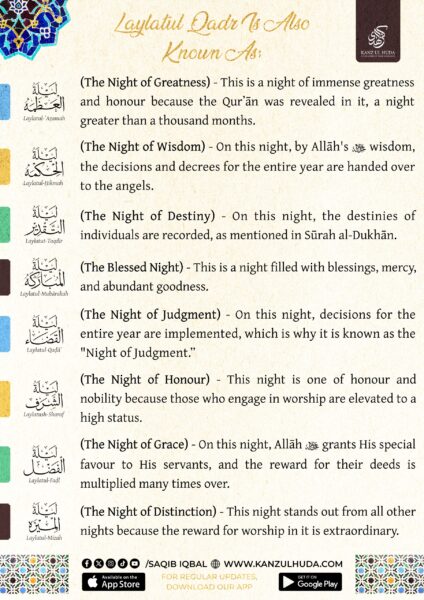 Laylatul Qadr Is Also
Known As:
KANZ UL HUDA
(The Night of Greatness) - This is a night of immense greatness
and honour because the Qur'ān was revealed in it, a night
greater than a thousand months.
لَيْلَةُ
العَظَمَة
Laylatul-'Azamah
(The Night of Wisdom) - On this night, by Allāh's ﷻ wisdom,
the decisions and decrees for the entire year are handed over
to the angels.
لَيْلَةُ
الحِكْمَة
Laylatul-Hikmah
(The Night of Destiny) - On this night, the destinies of
individuals are recorded, as mentioned in Sūrah al-Dukhān.
لَيْلَةُ
التَّقْدِير
Laylatut-Taqdir
(The Blessed Night) - This is a night filled with blessings, mercy,
and abundant goodness.
لَيْلَةُ
المُبَارَكَة
Laylatul-Mubārakah
(The Night of Judgment) - On this night, decisions for the
entire year are implemented, which is why it is known as the
"Night of Judgment."
لَيْلَةُ
القَضَاء
Laylatul-Qaḍā'
(The Night of Honour) - This night is one of honour and
nobility because those who engage in worship are elevated to a
high status.
لَيْلَةُ
الشَّرَف
Laylatush-Sharaf
(The Night of Grace) - On this night, Allāh ﷻ grants His special
favour to His servants, and the reward for their deeds is
multiplied many times over.
لَيْلَةُ
الفَضْل
Laylatul-Faḍl
(The Night of Distinction) - This night stands out from all other
nights because the reward for worship in it is extraordinary.
لَيْلَةُ
/SAQIB IQBAL WWW.KANZULHUDA.COM
Available on the
App Store
FOR REGULAR UPDATES,
DOWNLOAD OUR APP
GET IT ON
Google Play